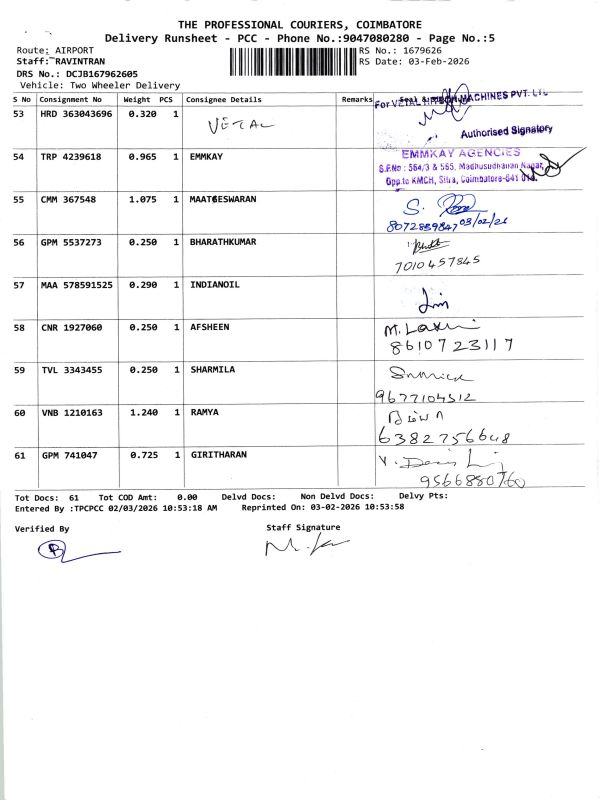 THE PROFESSIONAL COURIERS, COIMBATORE
Delivery Runsheet - PCC - Phone No.:9047080280 - Page No.:5
Route: AIRPORT
RS No.: 1679626
Staff: RAVINTRAN
RS Date: 03-Feb-2026
DRS No.: DCJB167962605
Vehicle: Two Wheeler Delivery
S No Consignment No Weight PCS Consignee Details Remarks
For VETAL MACHINES PVT. LTD
53 HRD 363043696 0.320 1 VETAL
Authorised Signatory
54 TRP 4239618 0.965 1 EMMKAY
EMMKAY AGENCIES
S.F.No : 564/3 & 565, Madhusudhanan Nagar,
Opp.to KMCH, Sitra, Coimbatore-641 014.
55 CMM 367548 1.075 1 MAATGESWARAN
S.
8072859847 03/02/26
56 GPM 5537273 0.250 1 BHARATHKUMAR
7010457845
57 MAA 578591525 0.290 1 INDIANOIL
58 CNR 1927060 0.250 1 AFSHEEN
M. Laxmi
8610723117
59 TVL 3343455 0.250 1 SHARMILA
9677104512
60 VNB 1210163 1.240 1 RAMYA
6382756648
61 GPM 741047 0.725 1 GIRITHARAN
9566880760
Tot Docs: 61 Tot COD Amt: 0.00 Delvd Docs: Non Delvd Docs: Delvy Pts:
Entered By :TPCPCC 02/03/2026 10:53:18 AM Reprinted On: 03-02-2026 10:53:58
Verified By
Staff Signature